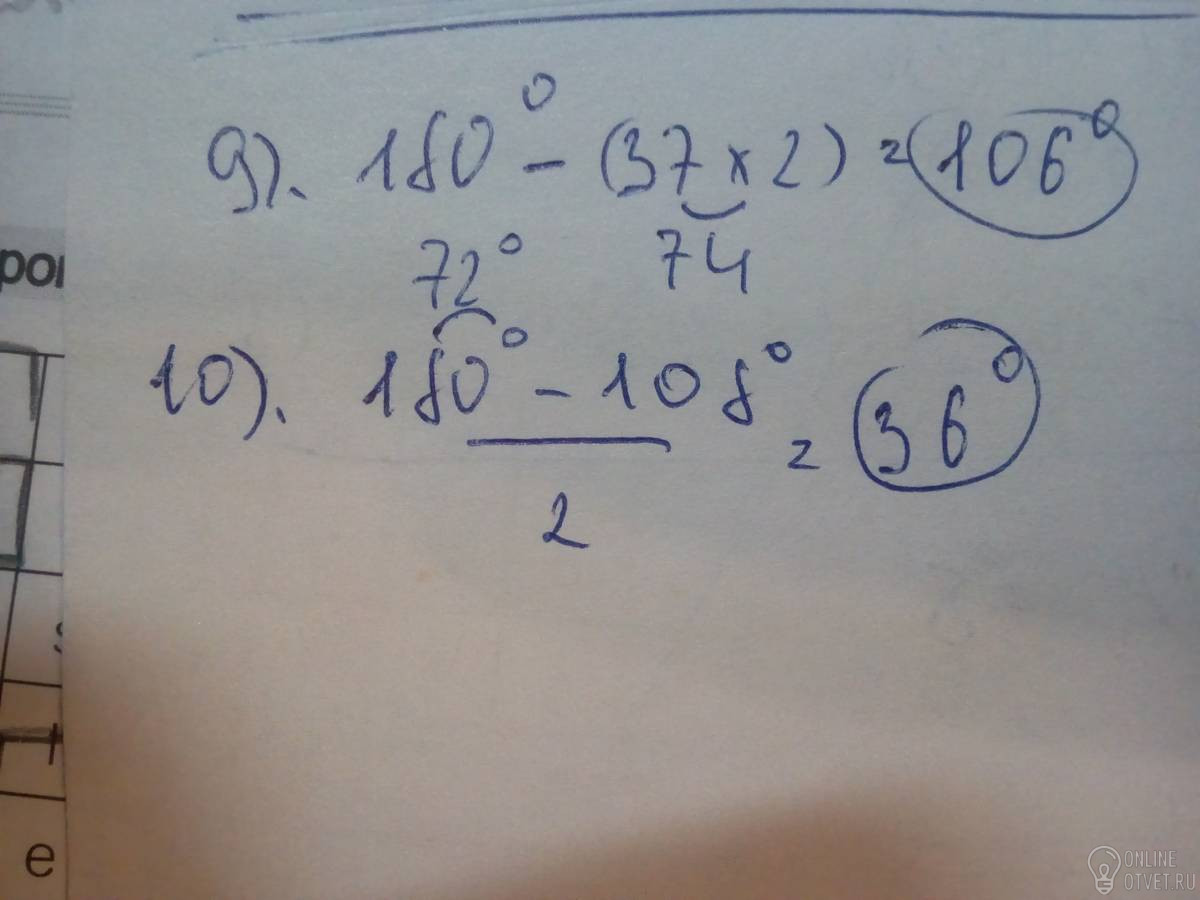 9). 180° - (37 × 2) = 106°
72° 74
10). 180° - 108° = 36°
2
рог
е
ONLINE
OTVET.RU